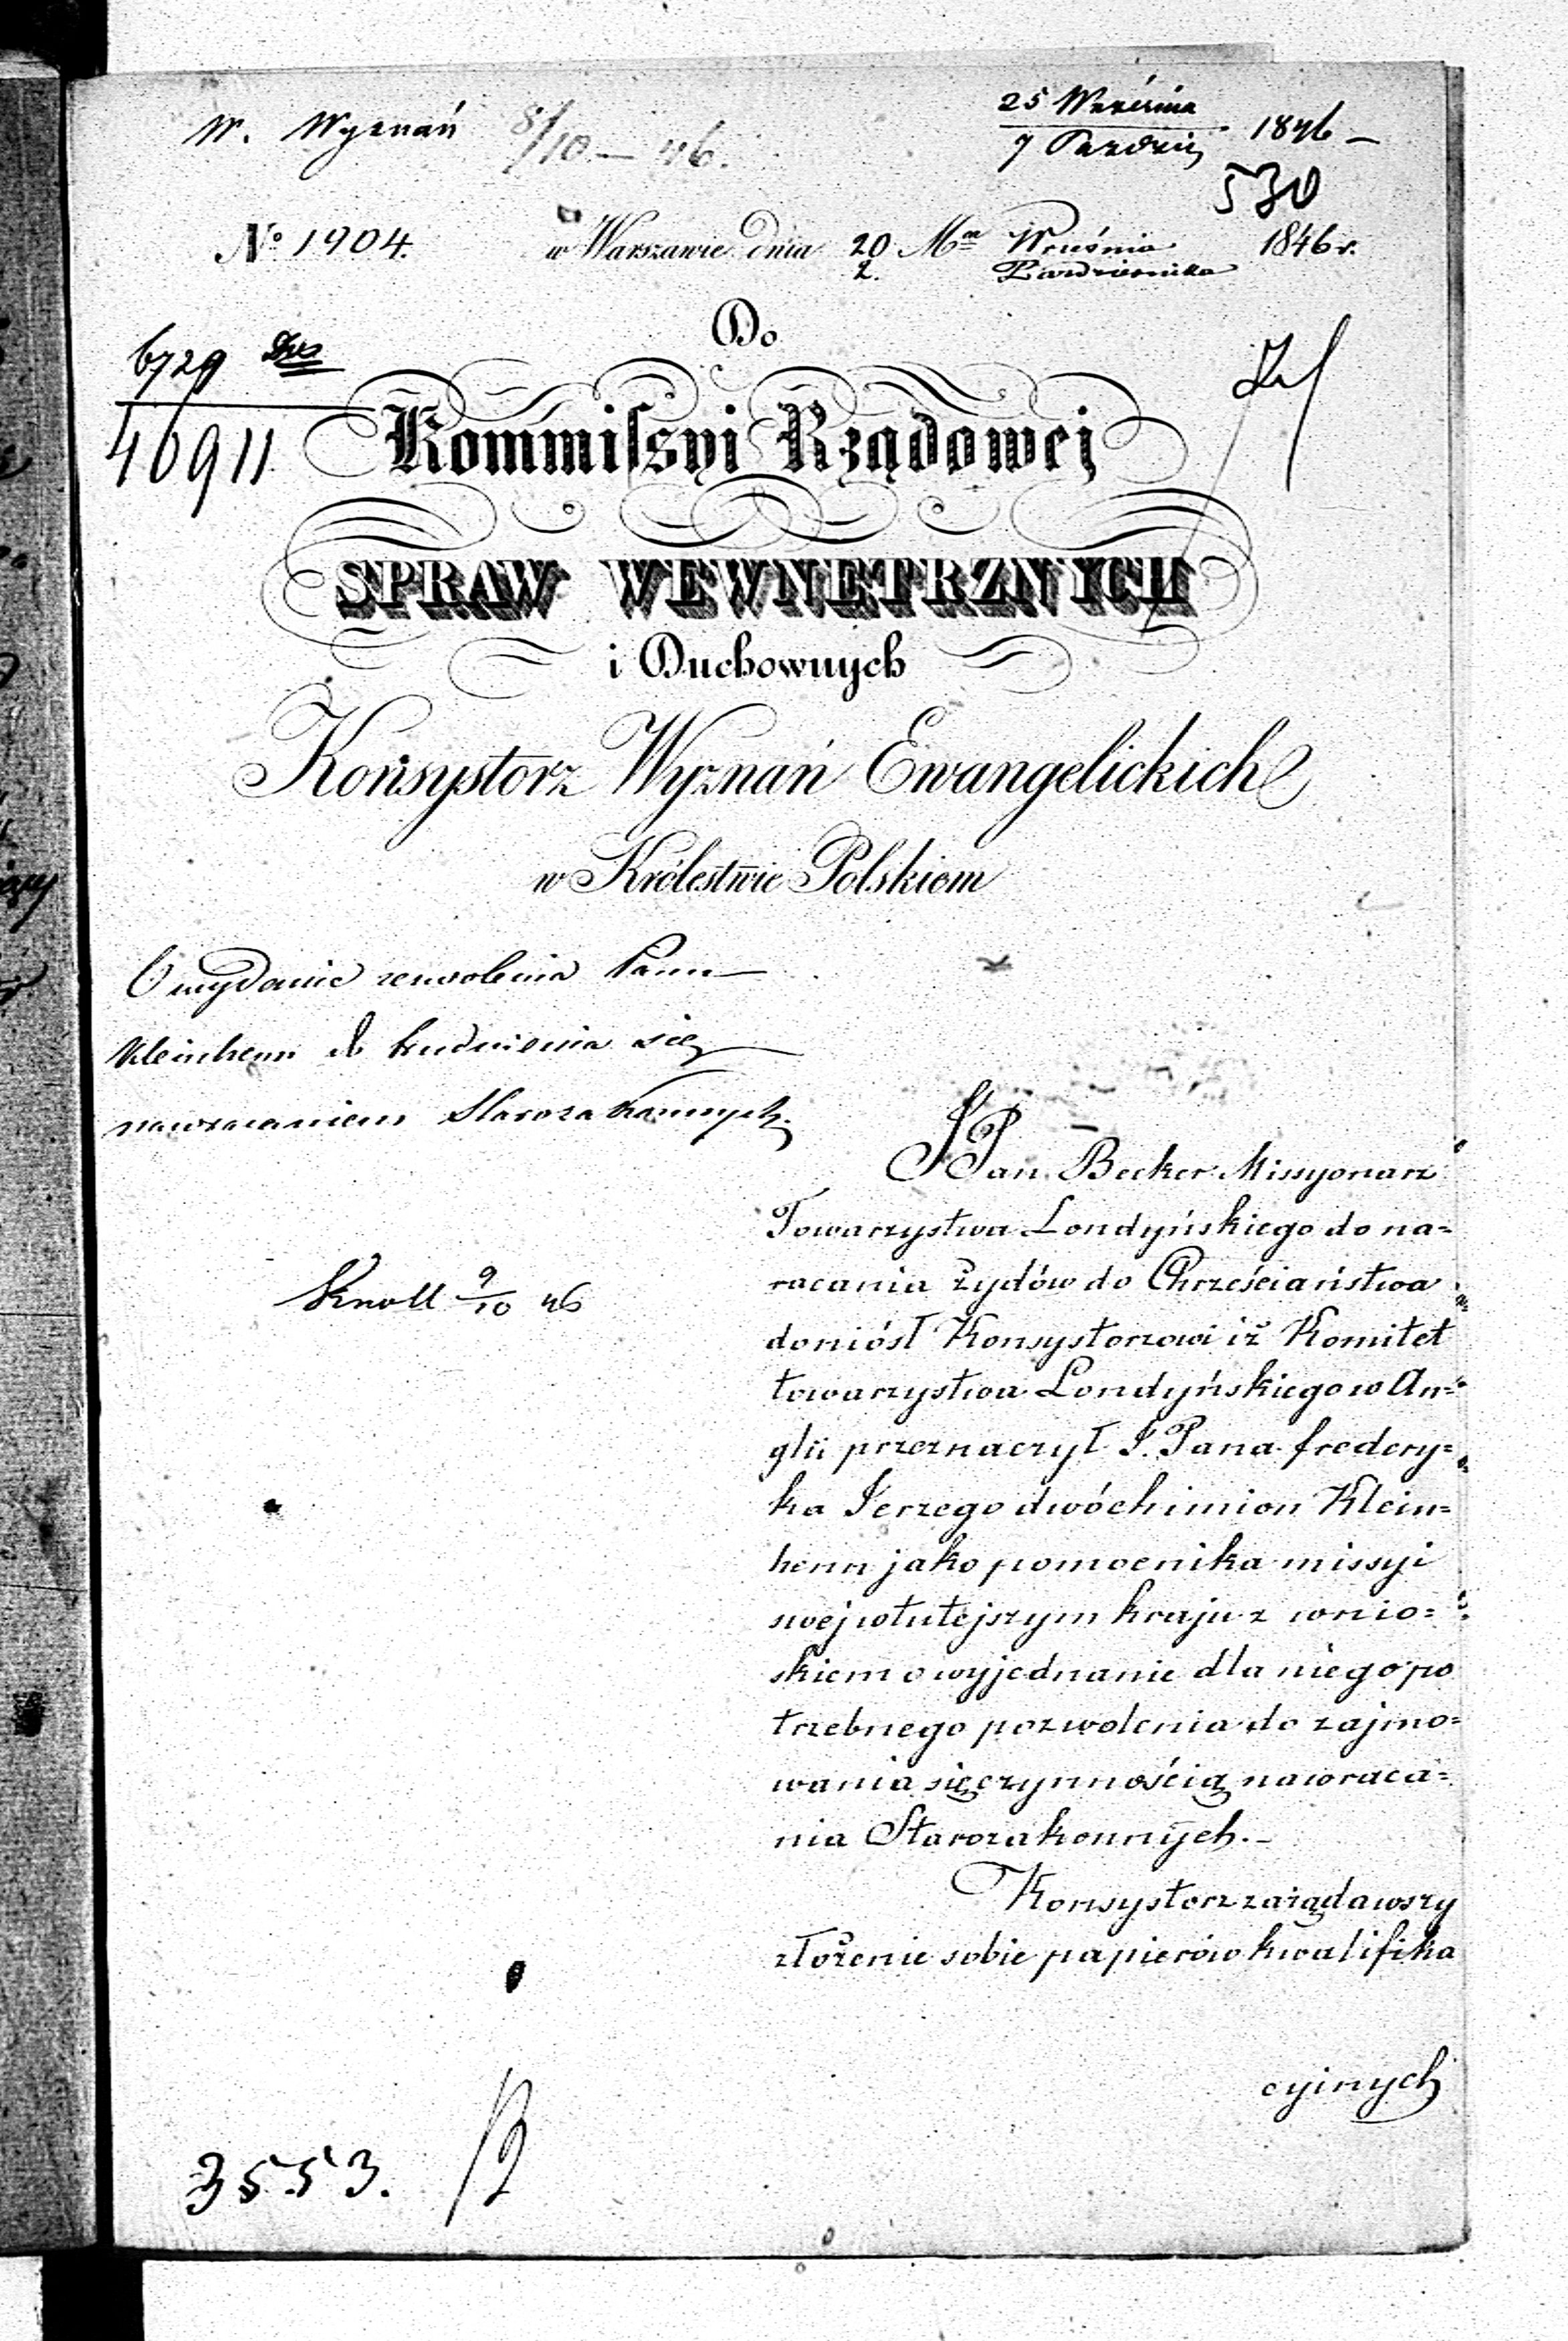 W. Wyznań 8/10 – 46.
25 Września
7 Paździ 1846 –
530
No 1904. w Warszawie dnia 20 Ma Września 1846 r.
2. Października
6729
46911
Do
Kommissyi Rządowej
SPRAW WEWNETRZNYCH
i Duchownych
Konsystorz Wyznań Ewangelickich
w Królestwie Polskiem
O wydanie zezwolenia Panu
Kleinhenn do trudnienia się
nawracaniem Starozakonnych.
Knoll 9/10 46
JPan Becker Missyonarz
Towarzystwa Londyńskiego do na=
racania Żydów do Chrześciaństwa
doniósł Konsystorzowi iż Komitet
towarzystwa Londyńskiego w An=
glii przeznaczył J. Pana fredery=
ka Jerzego dwóch imion Klein=
henn jako pomocnika missyi
swej w tutejszym kraju z wnio=
skiem o wyjednanie dla niego po
trzebnego pozwolenia do zajmo=
wania się czynnością nawraca=
nia Starozakonnych. –
Konsystorz zażądawszy
złożenie sobie papierów kwalifika
cyinych
3553.